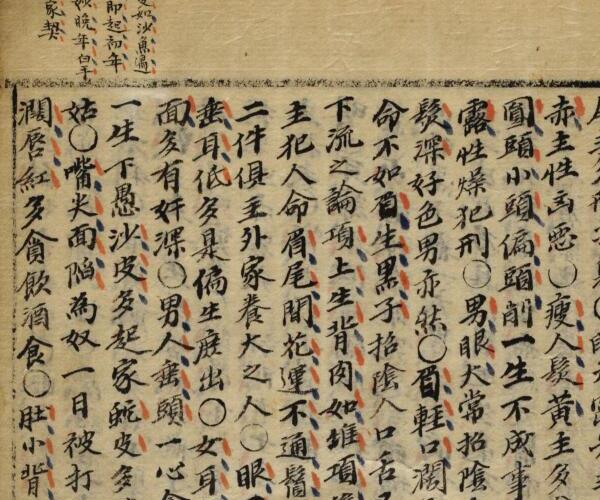 赤主性凶惡〇瘦人髮黃主多
圓頭小頭偏頭削一生不成事
露性燥犯刑〇男眼大常招陰
髮深好色男亦然〇眉輕口濶
命不如眉生黑子招陰人口舌
下流之論項上生背肉如堆項
主犯人命眉尾開花運不通鬚
二件俱主外家養大之人〇眼
垂耳低多是偏生庶出〇女耳
面多有奸深〇男人垂頭一心
一生下愚沙皮多起家蛇皮多
姑〇嘴尖面陷為奴一日被打
濶唇紅多貪飲酒食〇肚小背
如沙魚濕
即起初年
晚年白手
家契